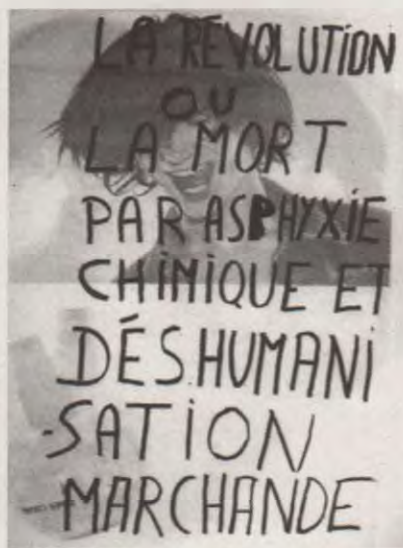 LA RÉVOLUTION
OU
LA MORT
PAR ASPHYXIE
CHIMIQUE ET
DÉSHUMANI
-SATION
MARCHANDE